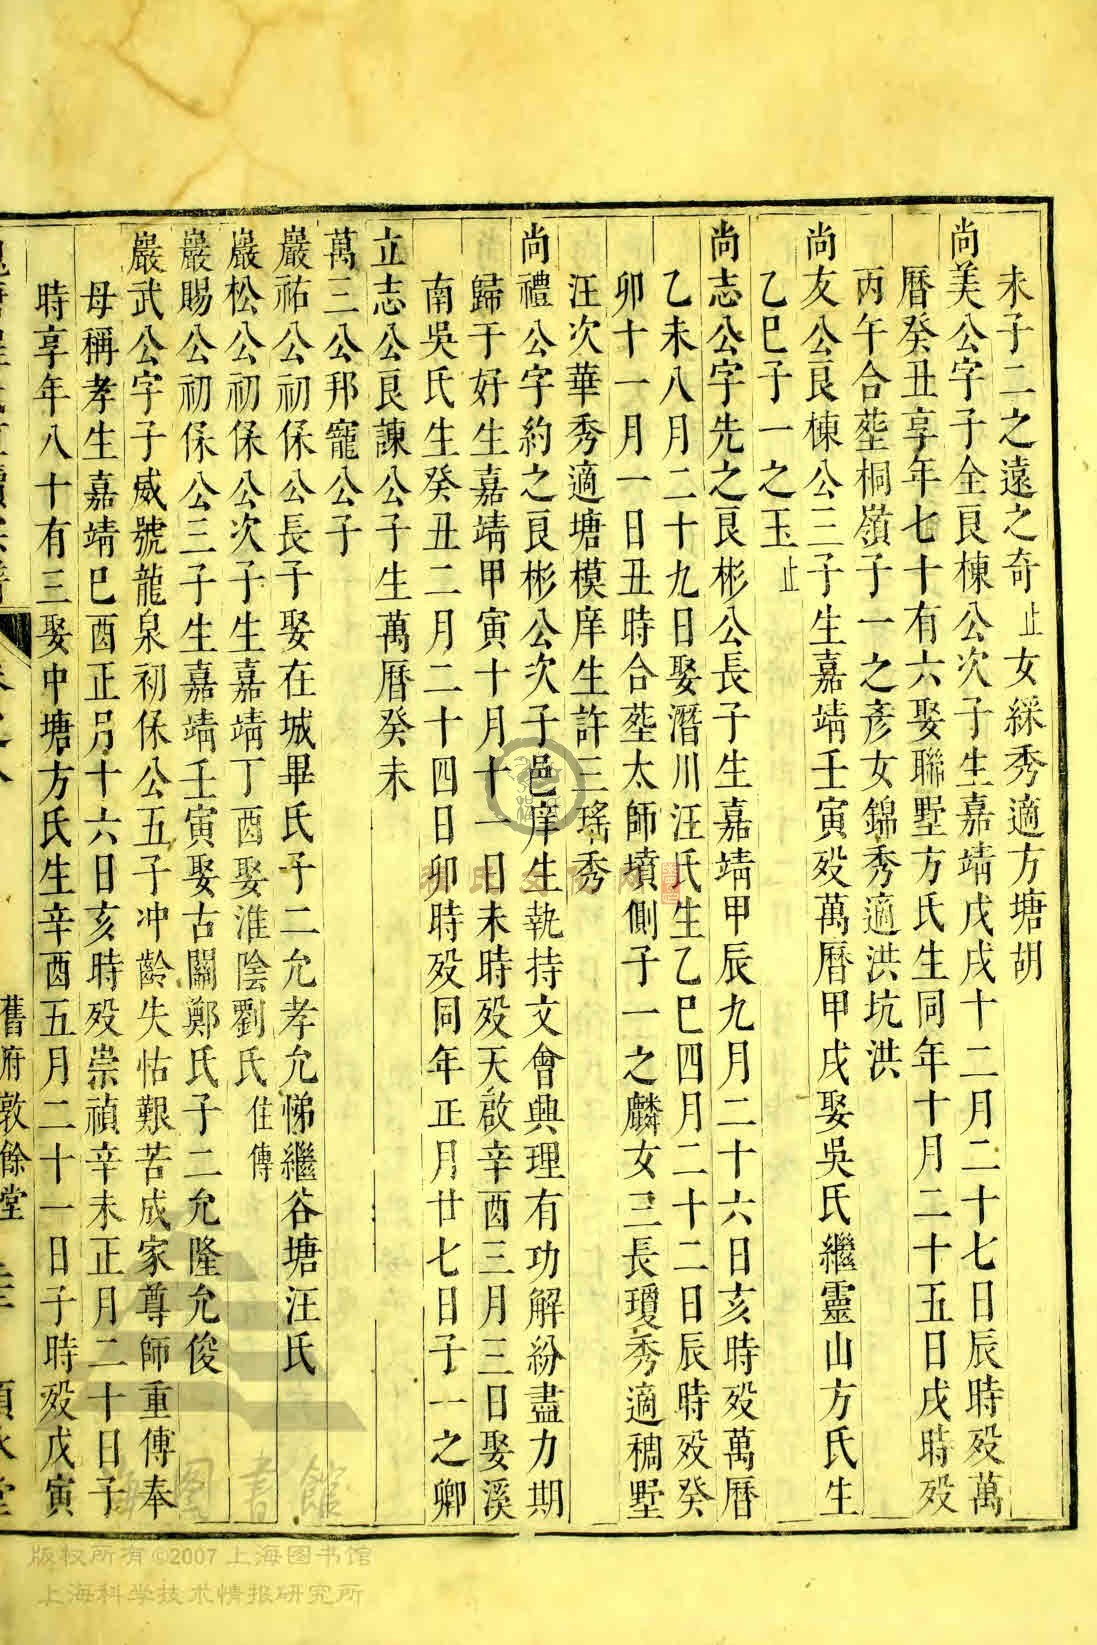 未子二之遠之奇止女綵秀適方塘胡
尚美公字子全良棟公次子生嘉靖戊戌十二月二十七日辰時殁萬
曆癸丑享年七十有六娶聯墅方氏生同年十月二十五日戌時殁
丙午合塟桐嶺子一之彥女錦秀適洪坑洪
尚友公良棟公三子生嘉靖壬寅殁萬曆甲戌娶吳氏繼靈山方氏生
乙巳子一之玉止
尚志公字先之良彬公長子生嘉靖甲辰九月二十六日亥時殁萬曆
乙未八月二十九日娶潛川汪氏生乙巳四月二十二日辰時殁癸
卯十一月一日丑時合塟太師墳側子一之麟女三長瓊秀適稠墅
汪次華秀適塘模庠生許三瑤秀
尚禮公字約之良彬公次子邑庠生執持文會興理有功解紛盡力期
歸于好生嘉靖甲寅十月十一日未時殁天啟辛酉三月三日娶溪
南吳氏生癸丑二月二十四日卯時殁同年正月廿七日子一之卿
立志公良諫公子生萬曆癸未
萬三公邦寵公子
巖祐公初保公長子娶在城畢氏子二允孝允悌繼谷塘汪氏
巖松公初保公次子生嘉靖丁酉娶淮陰劉氏住傳
巖賜公初保公三子生嘉靖壬寅娶古關鄭氏子二允隆允俊
巖武公字子威號龍泉初保公五子冲齡失怙艱苦成家尊師重傳奉
母稱孝生嘉靖巳酉正月十六日亥時殁崇禎辛未正月二十日子
時享年八十有三娶中塘方氏生辛酉五月二十一日子時殁戊寅
舊府敦餘堂
版权所有©2007上海图书馆
上海科学技术情报研究所